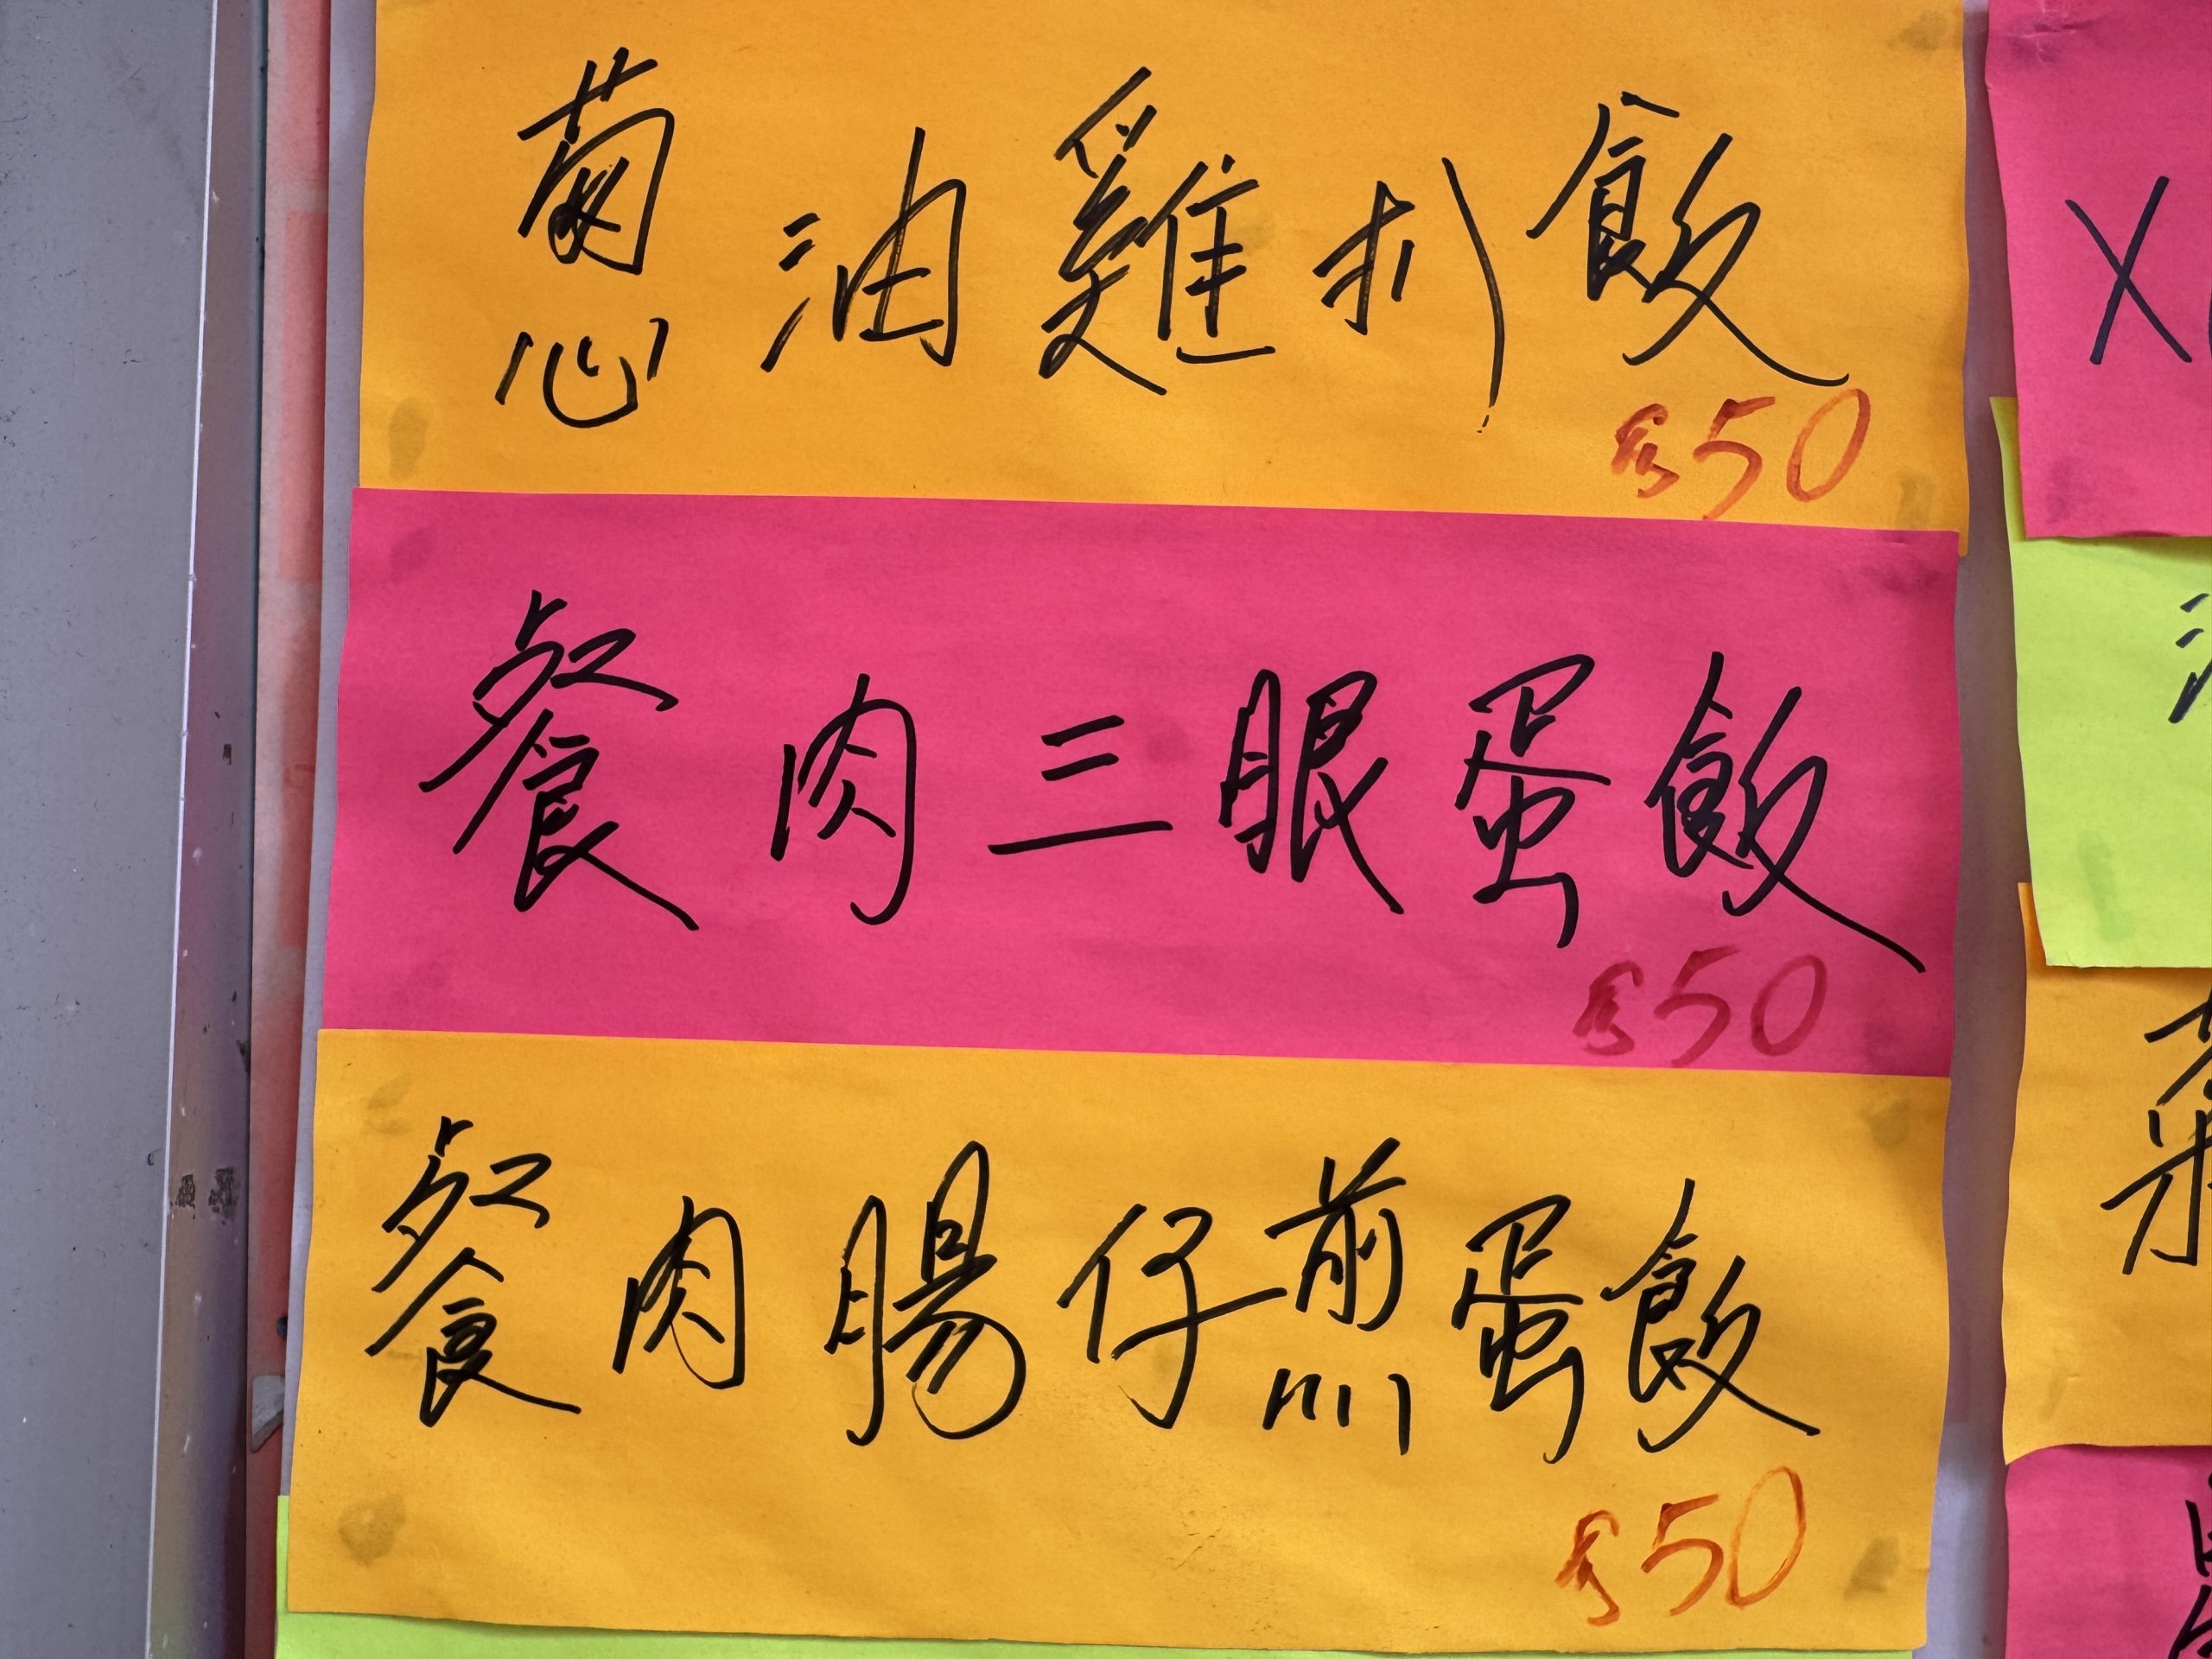 葱油雞扒飯
$50
餐肉三眼蛋飯
$50
餐肉腸仔煎蛋飯
$50